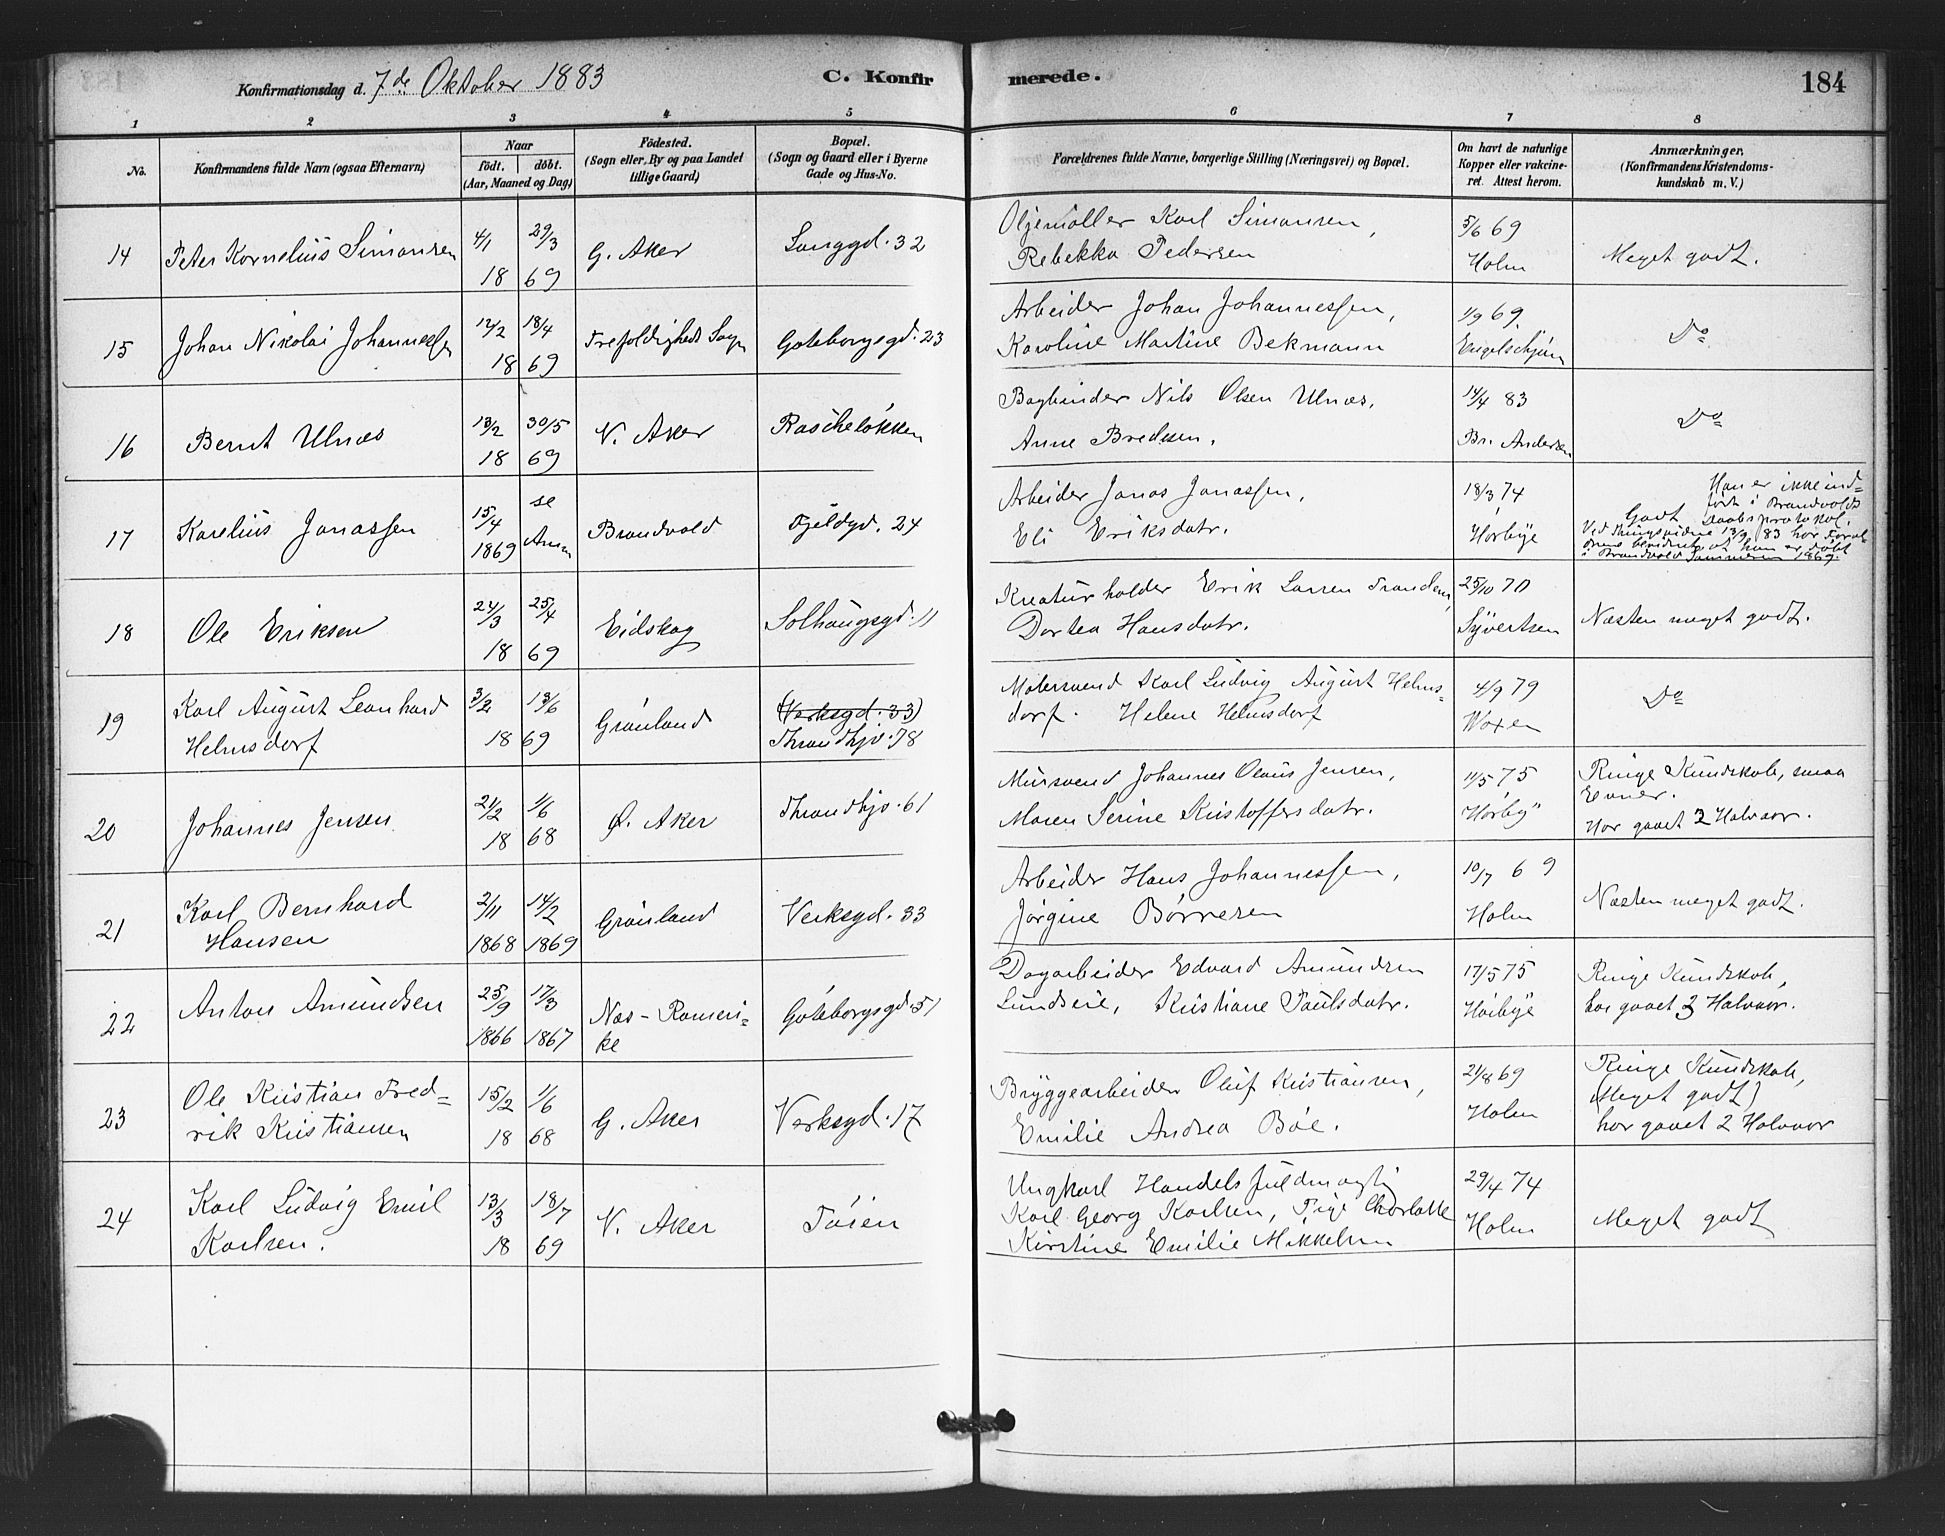 Konfirmationsdag d. 7de Oktober 1883
C. Konfir merede.
184
1 2 3 4 5 6 7 8
No.
Konfirmandens fulde Navn (ogsaa Efternavn)
Naar
födt. döbt.
(Aar, Maaned og Dag)
Födested.
(Sogn eller, By og paa Landet
tillige Gaard)
Bopæl.
(Sogn og Gaard eller i Byerne
Gade og Hus-No.
Forældrenes fulde Navne, borgerlige Stilling (Næringsvei) og Bopæl.
Om havt de naturlige
Kopper eller vakcine-
ret. Attest herom.
Anmærkninger,
(Konfirmandens Kristendoms-
kundskab m. V.)
14 Peter Kornelius Simonsen
4/1 29/3
18 69
G. Aker
Langgd. 32
Oljemøller Karl Simonsen,
Rebekka Pedersen
5/6 69
Holm
Meget godt.
15 Johan Nikolai Johannessen
12/2 18/4
18 69
Trefoldigheds Sogn
Goteborgsgd. 23
Arbeider Johan Johannessen,
Karoline Martine Bekmann
1/9 69
Engelschjøn
Do
16 Bernt Ulnæs
13/2 30/5
18 69
N. Aker
Rascheløkken
Bogbinder Nils Olsen Ulnæs,
Anne Bredesen.
14/4 83
Br. Andersen
Do
17 Karelius Jonassen
15/4 se
1869 Anm
Brandvold
Fjeldgd. 24
Arbeider Jonas Jonassen,
Eli Eriksdatr.
18/3 74
Hørbye
Han er ikke ind=
ført i Brandvolds
Godt Daabsprotokol.
Ved Thingsvidne 13/9 83 har Foræl=
drene bevidnet at han er døbt
i Brandvold Sommeren 1869.
18 Ole Eriksen
24/3 25/4
18 69
Eidskog
Solhaugsgd. 11
Kreaturholder Erik Larsen Tranden,
Dortea Hansdatr.
25/10 70
Syvertsen
Næsten meget godt.
19 Karl August Leonhard
Helmsdorf
3/2 13/6
18 69
Grønland
(Verksgd. 33)
Throndhjv. 78
Malersvend Karl Ludvig August Helms=
dorf. Helene Helmsdorf
4/9 79
Woxen
Do
20 Johannes Jensen
21/2 1/6
18 68
Ø. Aker
Throndhjv. 61
Mursvend Johannes Olaus Jensen,
Maren Serine Kristoffersdatr.
11/5 75
Hørby
Ringe Kundskab, smaa
Evner.
Har gaaet 2 Halvaar.
21 Karl Bernhard
Hansen
2/11 14/2
1868 1869
Grønland
Verksgd. 33
Arbeider Hans Johannessen,
Jørgine Børresen
10/7 69
Holm
Næsten meget godt.
22 Anton Amundsen
25/9 17/3
1866 1867
Næs - Romeri-
ke
Gøteborgsgd 51
Dagarbeider Edvard Amundsen
Lundseie, Kristiane Paulsdatr.
17/5 75
Høibye
Ringe Kundskab,
har gaaet 3 Halvaar.
23 Ole Kristian Fred=
rik Kristiansen
15/2 1/6
18 68
G. Aker
Verksgd. 17
Bryggearbeider Oluf Kristiansen,
Emilie Andrea Bøe.
21/8 69
Holm
Ringe Kundskab,
(Meget godt)
har gaaet 2 Halvaar
24 Karl Ludvig Emil
Karlsen.
13/3 18/7
18 69
N. Aker
Tøien
Ungkarl Handelsfuldmægtig
Karl Georg Karlsen, Pige Charlotte
Kirstine Emilie Mikkelsen
29/4 74
Holm
Meget godt